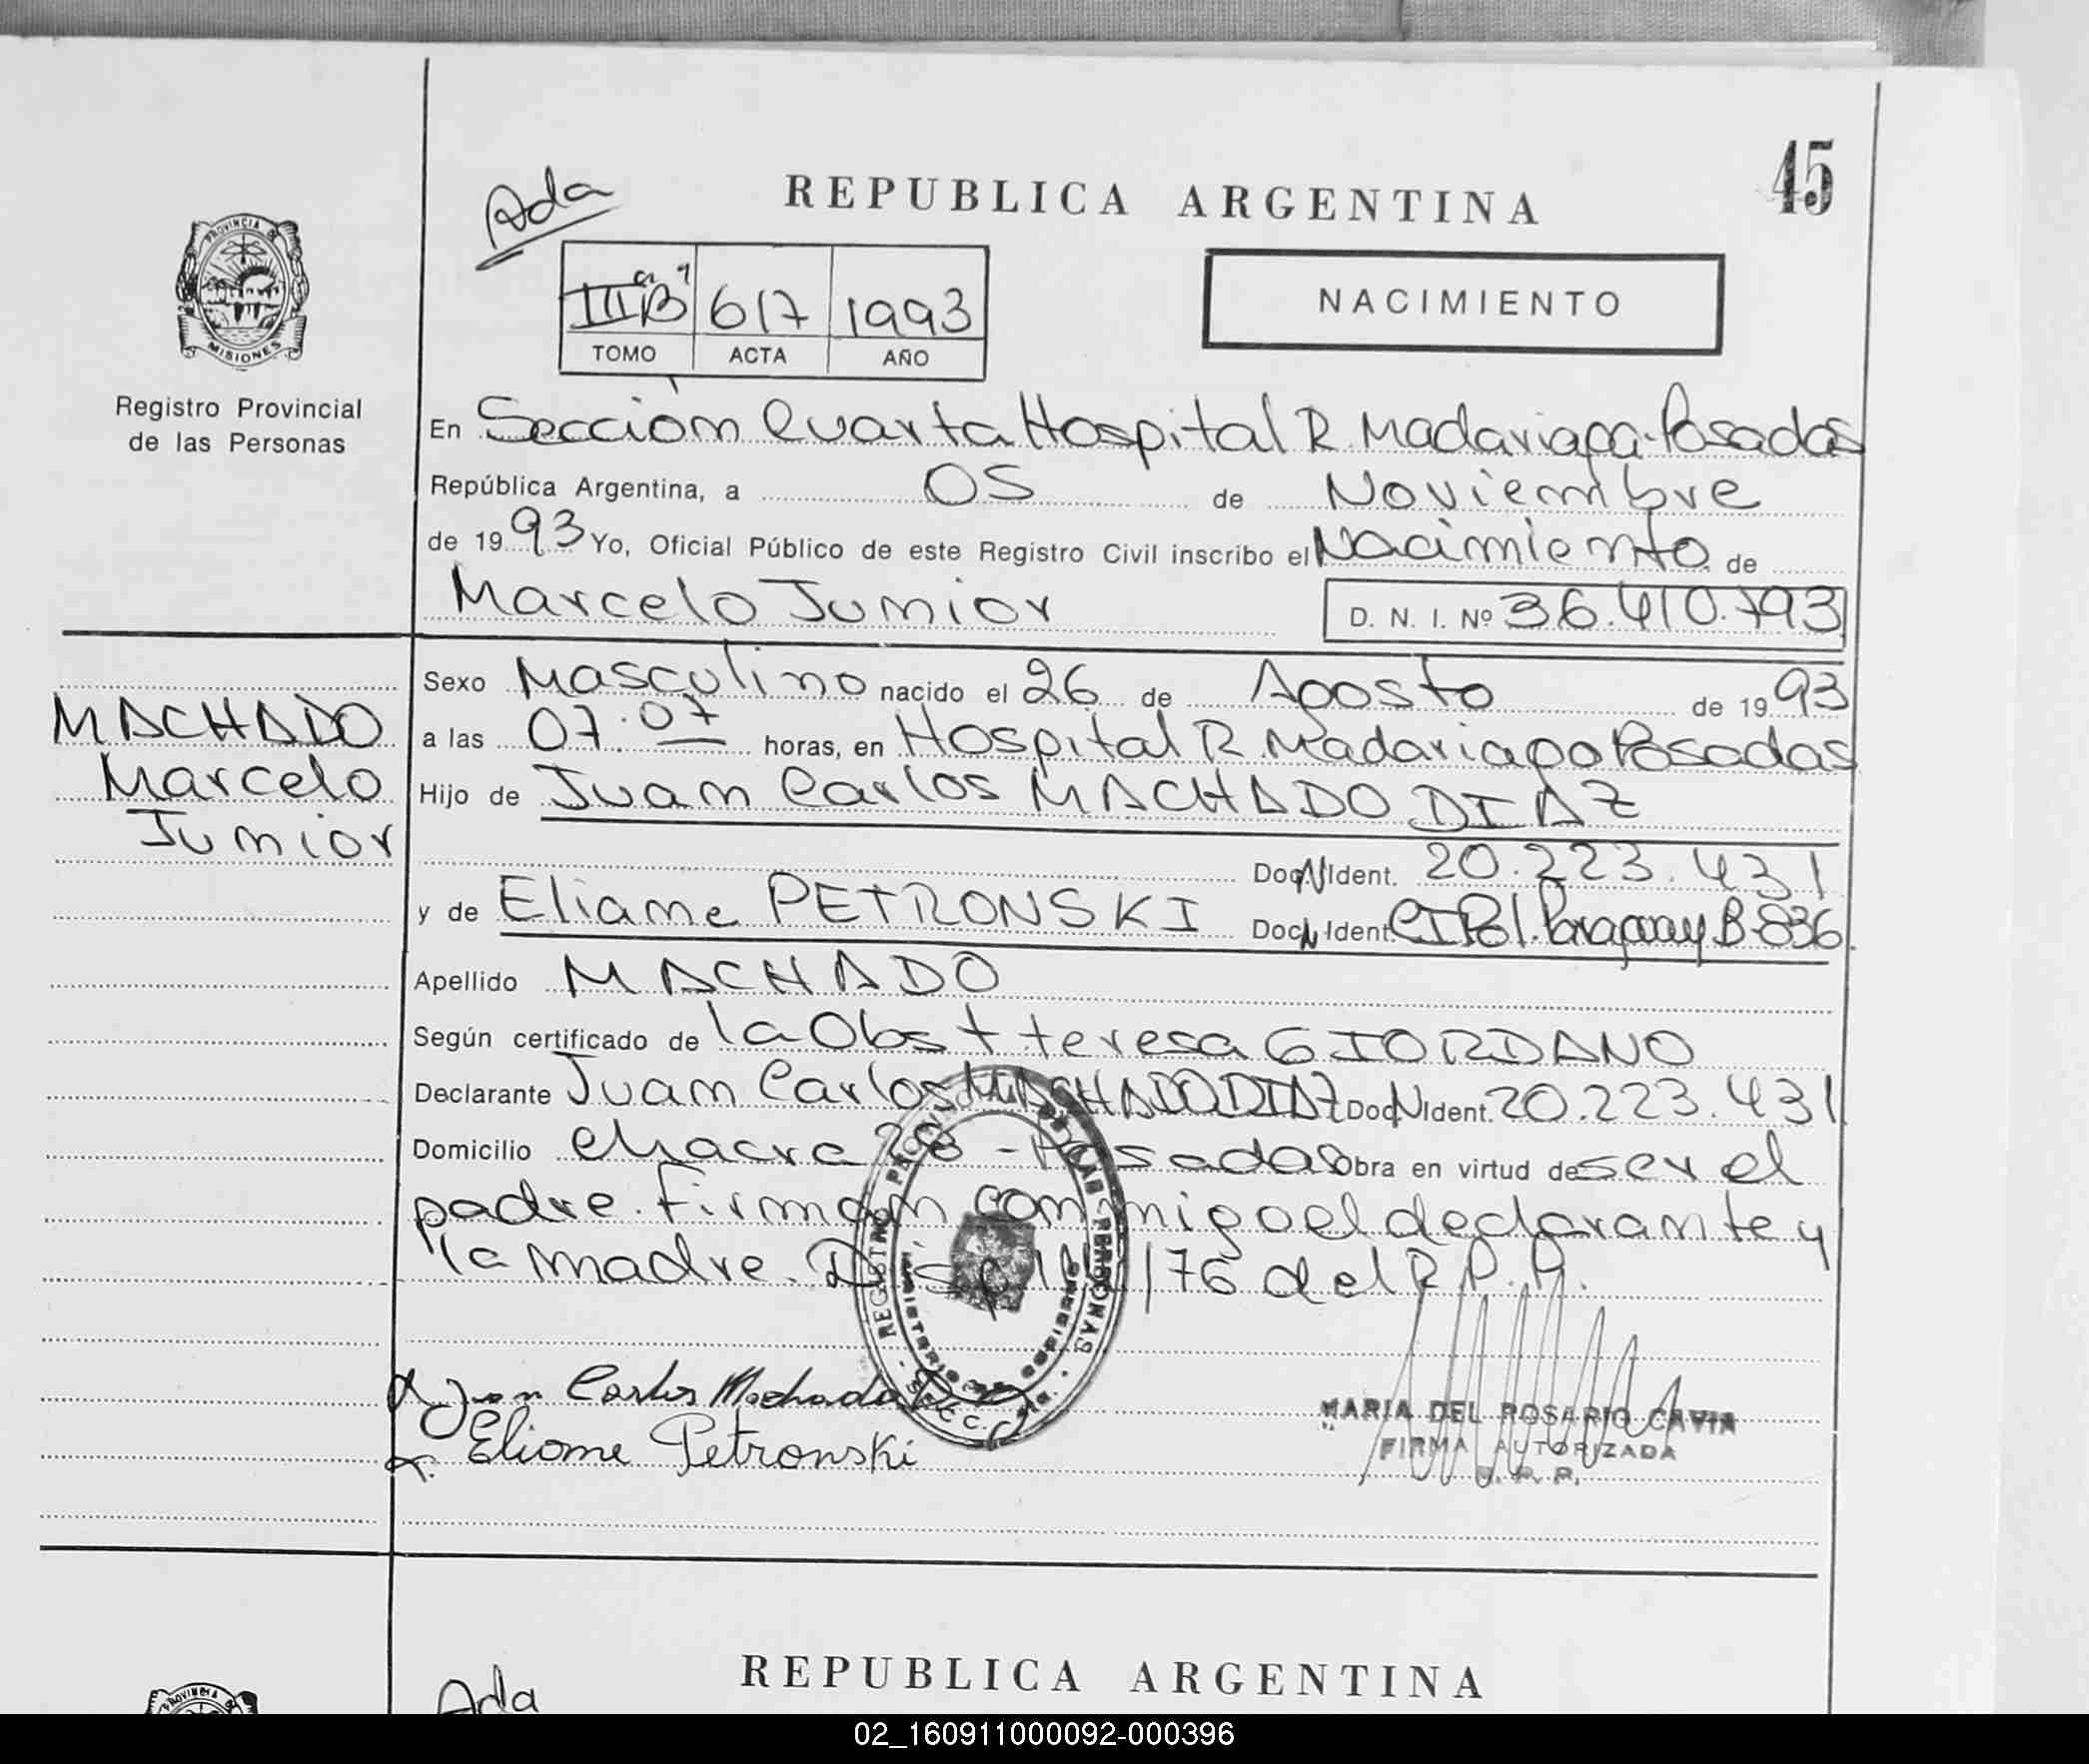 45
Ada
REPUBLICA ARGENTINA
PROVINCIA DE
MISIONES
III "B" 617 1993
TOMO ACTA AÑO
NACIMIENTO
Registro Provincial
de las Personas
En Sección Cuarta Hospital R. Madariaga-Posadas
República Argentina, a 05 de Noviembre
de 1993 Yo, Oficial Público de este Registro Civil inscribo el Nacimiento de
Marcelo Junior D. N. I. Nº 36.410.793
MACHADO
Marcelo
Junior
Sexo Masculino nacido el 26 de Agosto de 1993
a las 07.07 horas, en Hospital R. Madariaga Posadas
Hijo de Juan Carlos MACHADO DIAZ
Doc. N Ident. 20.223.431
y de Eliane PETRONSKI Doc. N Ident. CI Pol. Paraguay B-836
Apellido MACHADO
Según certificado de la Obst teresa GIORDANO
Declarante Juan Carlos MACHADO DIAZ Doc. N Ident. 20.223.431
Domicilio chacra 28 - Posadas Obra en virtud de ser el
padre. Firman conmigo el declarante y
la madre. Disp. /76 del R.P.P.
REGISTRO PROVINCIAL DE LAS PERSONAS
MINISTERIO DE GOBIERNO
SECC.
Juan Carlos Machado
Eliane Petronski
MARIA DEL ROSARIO CAVIA
FIRMA AUTORIZADA
R. P. P.
REPUBLICA ARGENTINA
PROVINCIA DE
Ada
02_160911000092-000396